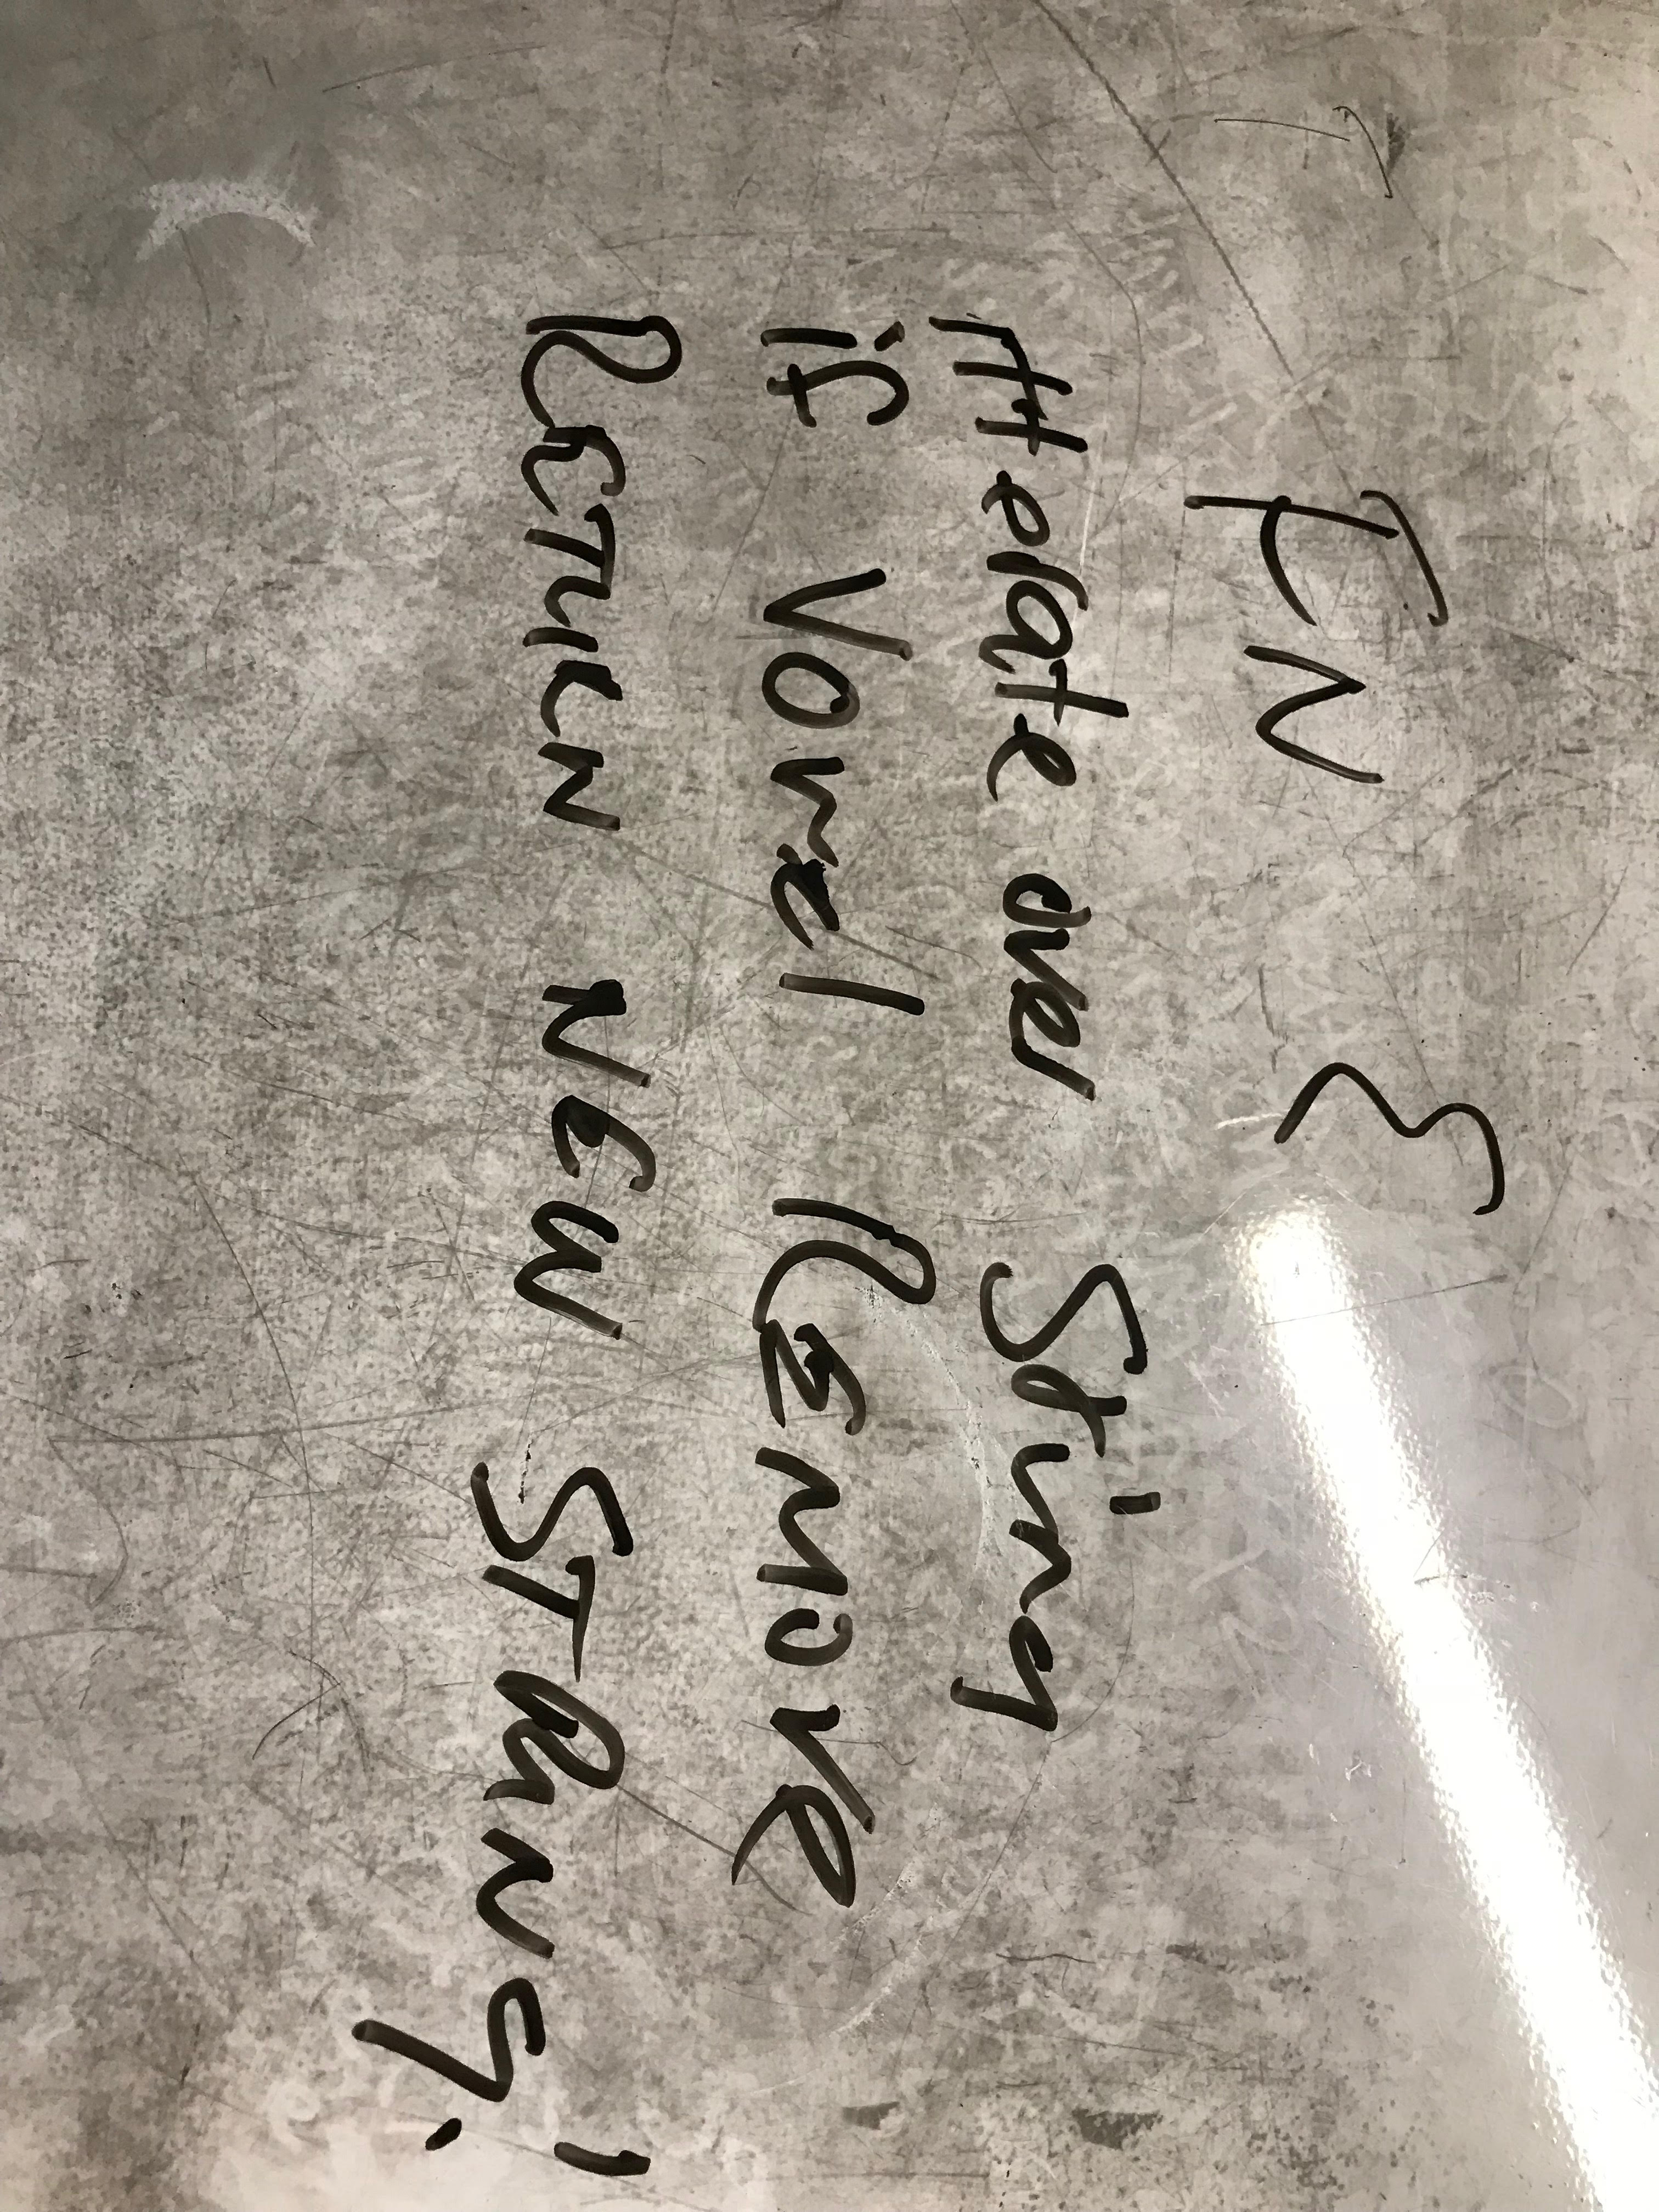 FN {
itterate over String
if Vowel Remove
RETURN NEW STRING!